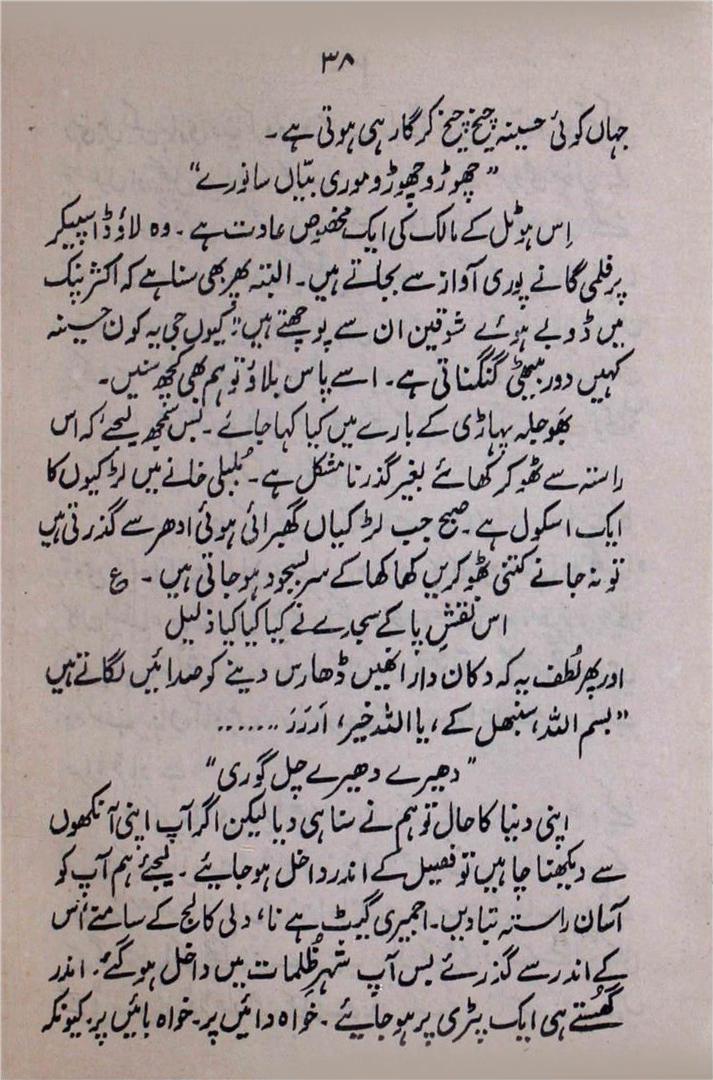 ۳۸
جہاں کوئی حسینہ چیخ چیخ کر گا رہی ہوتی ہے۔
”چھوڑو چھوڑو موری بیّاں سانورے“
اِس ہوٹل کے مالک کی ایک مخصوص عادت ہے۔ وہ لاؤڈ اسپیکر
پر فلمی گانے پوری آواز سے بجاتے ہیں۔ البتہ پھر بھی سنا ہے کہ اکثر پنک
میں ڈوبے ہوئے شوقین ان سے پوچھتے ہیں ”کیوں جی یہ کون حسینہ
کہیں دور بیٹھی گنگناتی ہے۔ اسے پاس بلاؤ تو ہم بھی کچھ سنیں۔
بھوجلہ پہاڑی کے بارے میں کیا کہا جائے۔ بس سمجھ لیجے کہ اس
راستہ سے ٹھوکر کھائے بغیر گذرنا مشکل ہے۔ بُلبلی خانے میں لڑکیوں کا
ایک اسکول ہے۔ صبح جب لڑکیاں گھبرائی ہوئی ادھر سے گذرتی ہیں
تو نہ جانے کتنی ٹھوکریں کھا کھا کے سربسجود ہو جاتی ہیں۔ ع
اس نقشِ پا کے سجدے نے کیا کیا کیا ذلیل
اور پھر لُطف یہ کہ دکان دار انھیں ڈھارس دینے کو صدائیں لگاتے ہیں
”بسم اللہ، سنبھل کے، یا اللہ خیر، اَرَرَرَ .......
”دھیرے دھیرے چل گوری“
اپنی دنیا کا حال تو ہم نے سنا ہی دیا لیکن اگر آپ اپنی آنکھوں
سے دیکھنا چاہیں تو فصیل کے اندر داخل ہو جایئے۔ لیجئے ہم آپ کو
آسان راستہ بتا دیں۔ اجمیری گیٹ ہے نا، دلی کالج کے سامنے اُس
کے اندر سے گذرئے بس آپ شہرِ ظلمات میں داخل ہو گئے۔ اندر
گھُستے ہی ایک پٹری پر ہو جایئے۔ خواہ دائیں پر۔ خواہ بائیں پر۔ کیونکہ